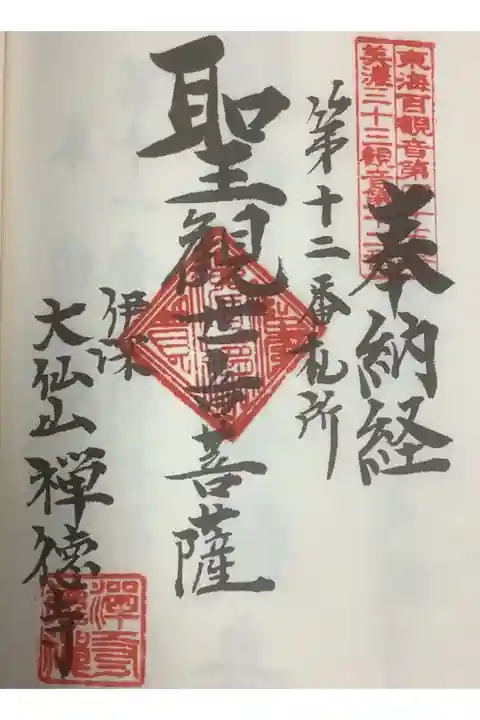 東海百観音第
美濃三十三観音第十二
奉納経
第十二番札所
聖観世音菩薩
伊深
大仙山禅徳寺